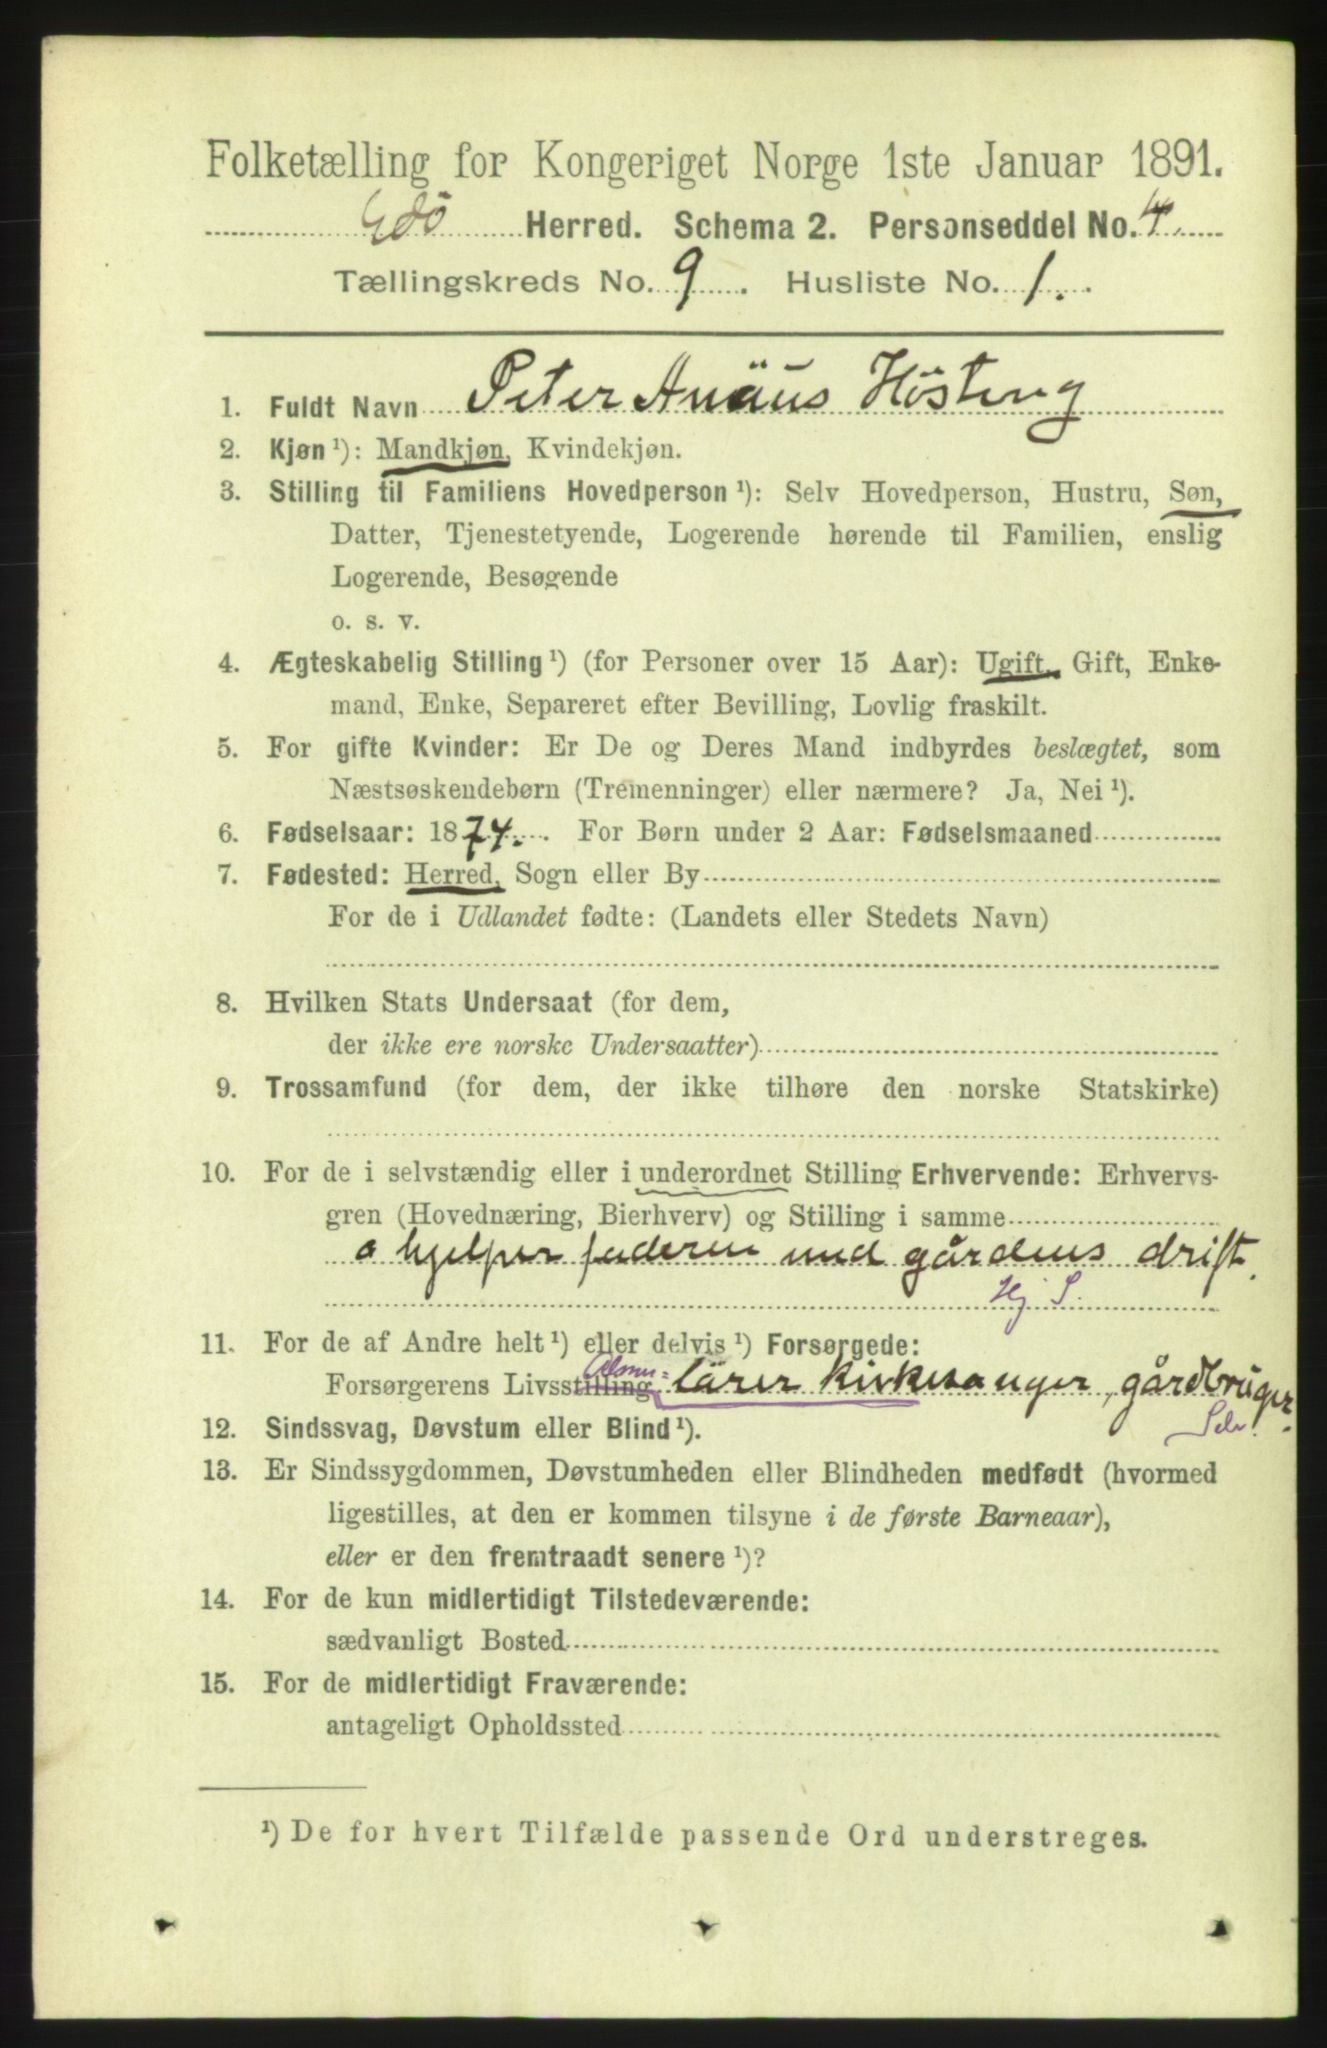 Folketælling for Kongeriget Norge 1ste Januar 1891.
Edö Herred. Schema 2. Personseddel No. 4.
Tællingskreds No. 9. Husliste No. 1.
1. Fuldt Navn Peter Anäus Hösteng
2. Kjøn ¹): Mandkjøn, Kvindekjøn.
3. Stilling til Familiens Hovedperson ¹): Selv Hovedperson, Hustru, Søn,
Datter, Tjenestetyende, Logerende hørende til Familien, enslig
Logerende, Besøgende
o. s. v.
4. Ægteskabelig Stilling ¹) (for Personer over 15 Aar): Ugift, Gift, Enke-
mand, Enke, Separeret efter Bevilling, Lovlig fraskilt.
5. For gifte Kvinder: Er De og Deres Mand indbyrdes beslægtet, som
Næstsøskendebørn (Tremenninger) eller nærmere? Ja, Nei ¹).
6. Fødselsaar: 1874. For Børn under 2 Aar: Fødselsmaaned
7. Fødested: Herred, Sogn eller By
For de i Udlandet fødte: (Landets eller Stedets Navn)
8. Hvilken Stats Undersaat (for dem,
der ikke ere norske Undersaatter)
9. Trossamfund (for dem, der ikke tilhøre den norske Statskirke)
10. For de i selvstændig eller i underordnet Stilling Erhvervende: Erhvervs-
gren (Hovednæring, Bierhverv) og Stilling i samme
a hjelper faderen med gårdens drift.
Hj S.
11. For de af Andre helt ¹) eller delvis ¹) Forsørgede:
Almu=
Forsørgerens Livsstilling lärer kirkesanger, gårdbruger.
Selv.
12. Sindssvag, Døvstum eller Blind ¹).
13. Er Sindssygdommen, Døvstumheden eller Blindheden medfødt (hvormed
ligestilles, at den er kommen tilsyne i de første Barneaar),
eller er den fremtraadt senere ¹)?
14. For de kun midlertidigt Tilstedeværende:
sædvanligt Bosted
15. For de midlertidigt Fraværende:
antageligt Opholdssted
¹) De for hvert Tilfælde passende Ord understreges.